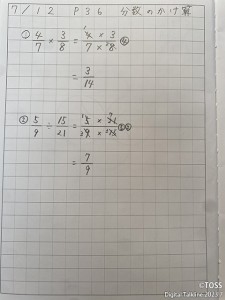 7/12 P36 分数のかけ算
① 4/7 × 3/8 = 4 × 3 / 7 × 8
= 3/14
② 5/9 ÷ 15/21 = 5 × 21 / 9 × 15
= 7/9
©TOSS
Digital Talkline 2023